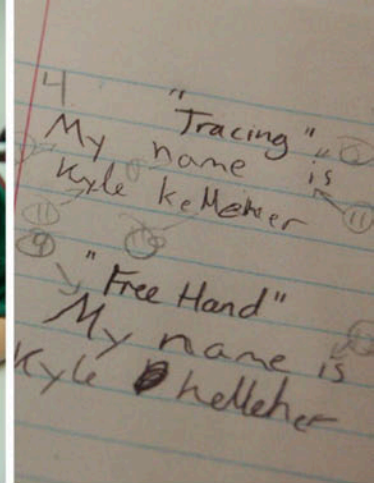 4
"Tracing"
My name is
Kyle Kelleher
11 11
9
"Free Hand"
My name is
Kyle helleher